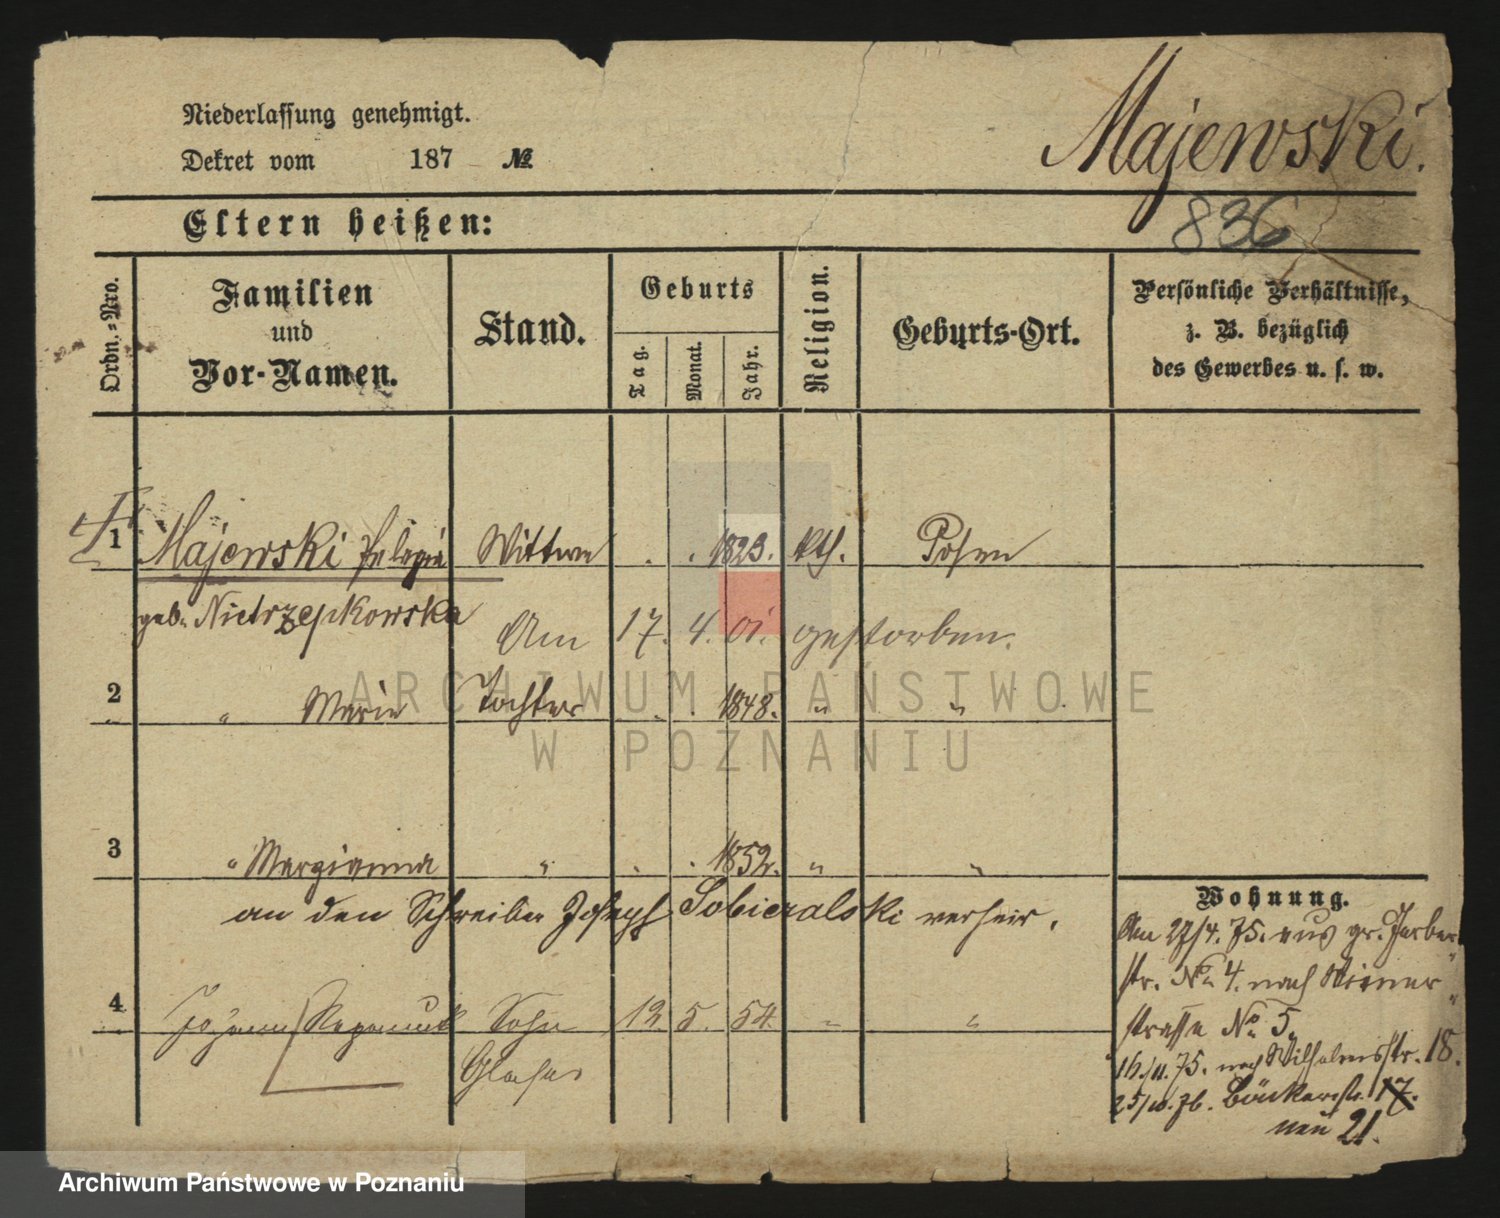 Niederlassung genehmigt.
Dekret vom 187 №
Majewski.
836
Eltern heißen:
Ordn.-Nro.
Familien und Vor-Namen.
Stand.
Geburts
Tag.
Monat.
Jahr.
Religion.
Geburts-Ort.
Persönliche Verhältnisse, z. B. bezüglich des Gewerbes u. s. w.
1 Majewski Pelagia Wittwe . . 1823. kth. Posen
geb. Nietrzepkowska
Am 17. 4. 01. gestorben.
2 " Marie Tochter . . 1848. " "
3 " Margianna " . . 1852. " "
an den Schreiber Joseph Sobieralski verheir.
4 Johann Nepomuk Sohn 12 5. 54 " "
Glaser
Wohnung.
Am 27/4. 75. aus gr. Gerber-
str. No 4. nach Wiener-
strasse No 5.
16./11. 75. nach Wilhelmsstr. 18.
25/10. 76. Bäckerstr. 17.
neu 21.
ARCHIWUM PAŃSTWOWE
W POZNANIU
Archiwum Państwowe w Poznaniu